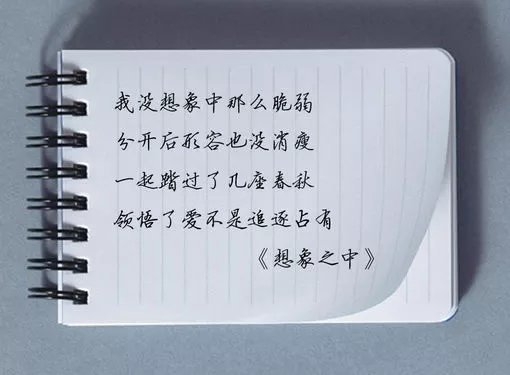 我没想象中那么脆弱
分开后形容也没消瘦
一起踏过了几座春秋
领悟了爱不是追逐占有
《想象之中》